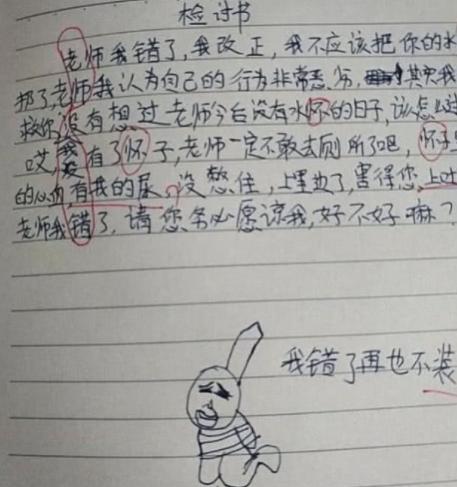 检讨书
老师我错了,我改正,我不应该把你的水
扔了,老师我认为自己的行为非常恶劣,其实我
没有想过老师今后没有水怀的日子,该怎么
哎,我有了怀子,老师一定不敢去厕所了吧,怀子
的心内有我的尿,没憋住,上里边了,害得您上吐
老师我错了,请您务必愿谅我,好不好嘛?
我错了再也不装